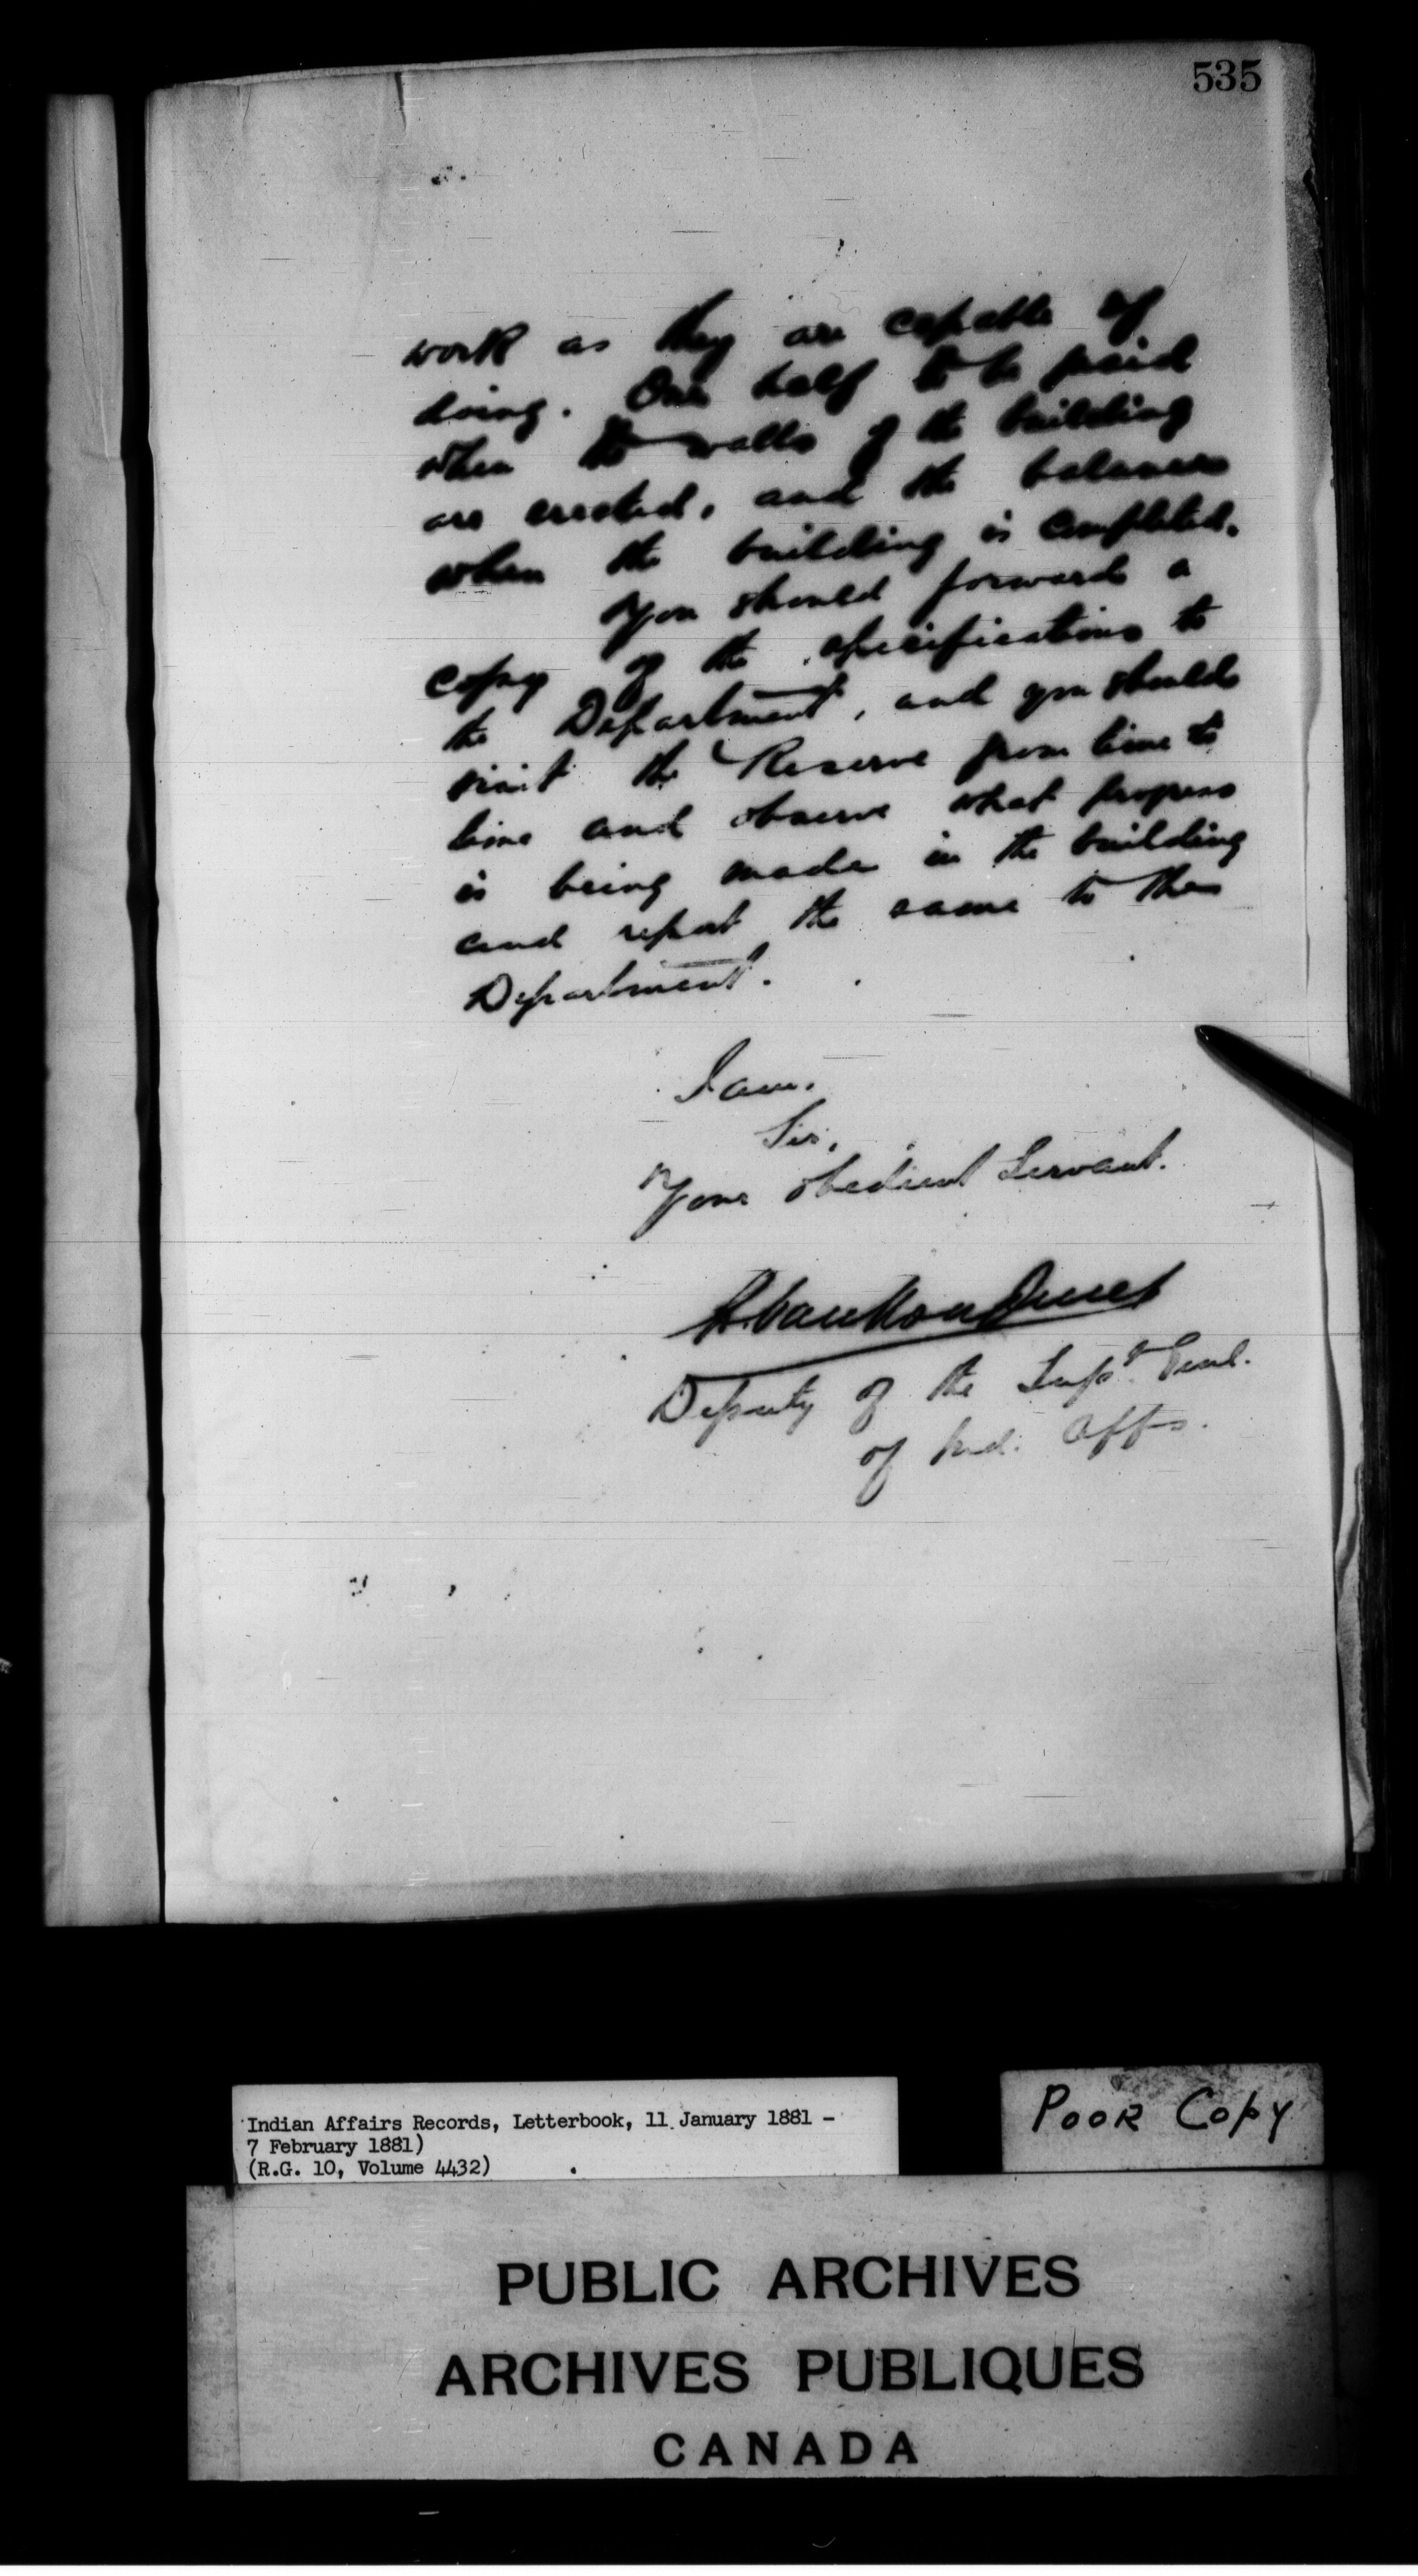 535
work as they are capable of
doing. One half to be paid
when the walls of the building
are erected, and the balance
when the building is completed.
You should forward a
copy of the specifications to
the Department, and you should
visit the Reserve from time to
time and observe what progress
is being made in the building
and report the same to the
Department.
I am,
Sir,
Your obedient Servant.
L. Vankoughnet
Deputy of the Supt. Genl.
of Ind. Affs.
Indian Affairs Records, Letterbook, 11 January 1881 -
7 February 1881)
(R.G. 10, Volume 4432)
POOR COPY
PUBLIC ARCHIVES
ARCHIVES PUBLIQUES
CANADA